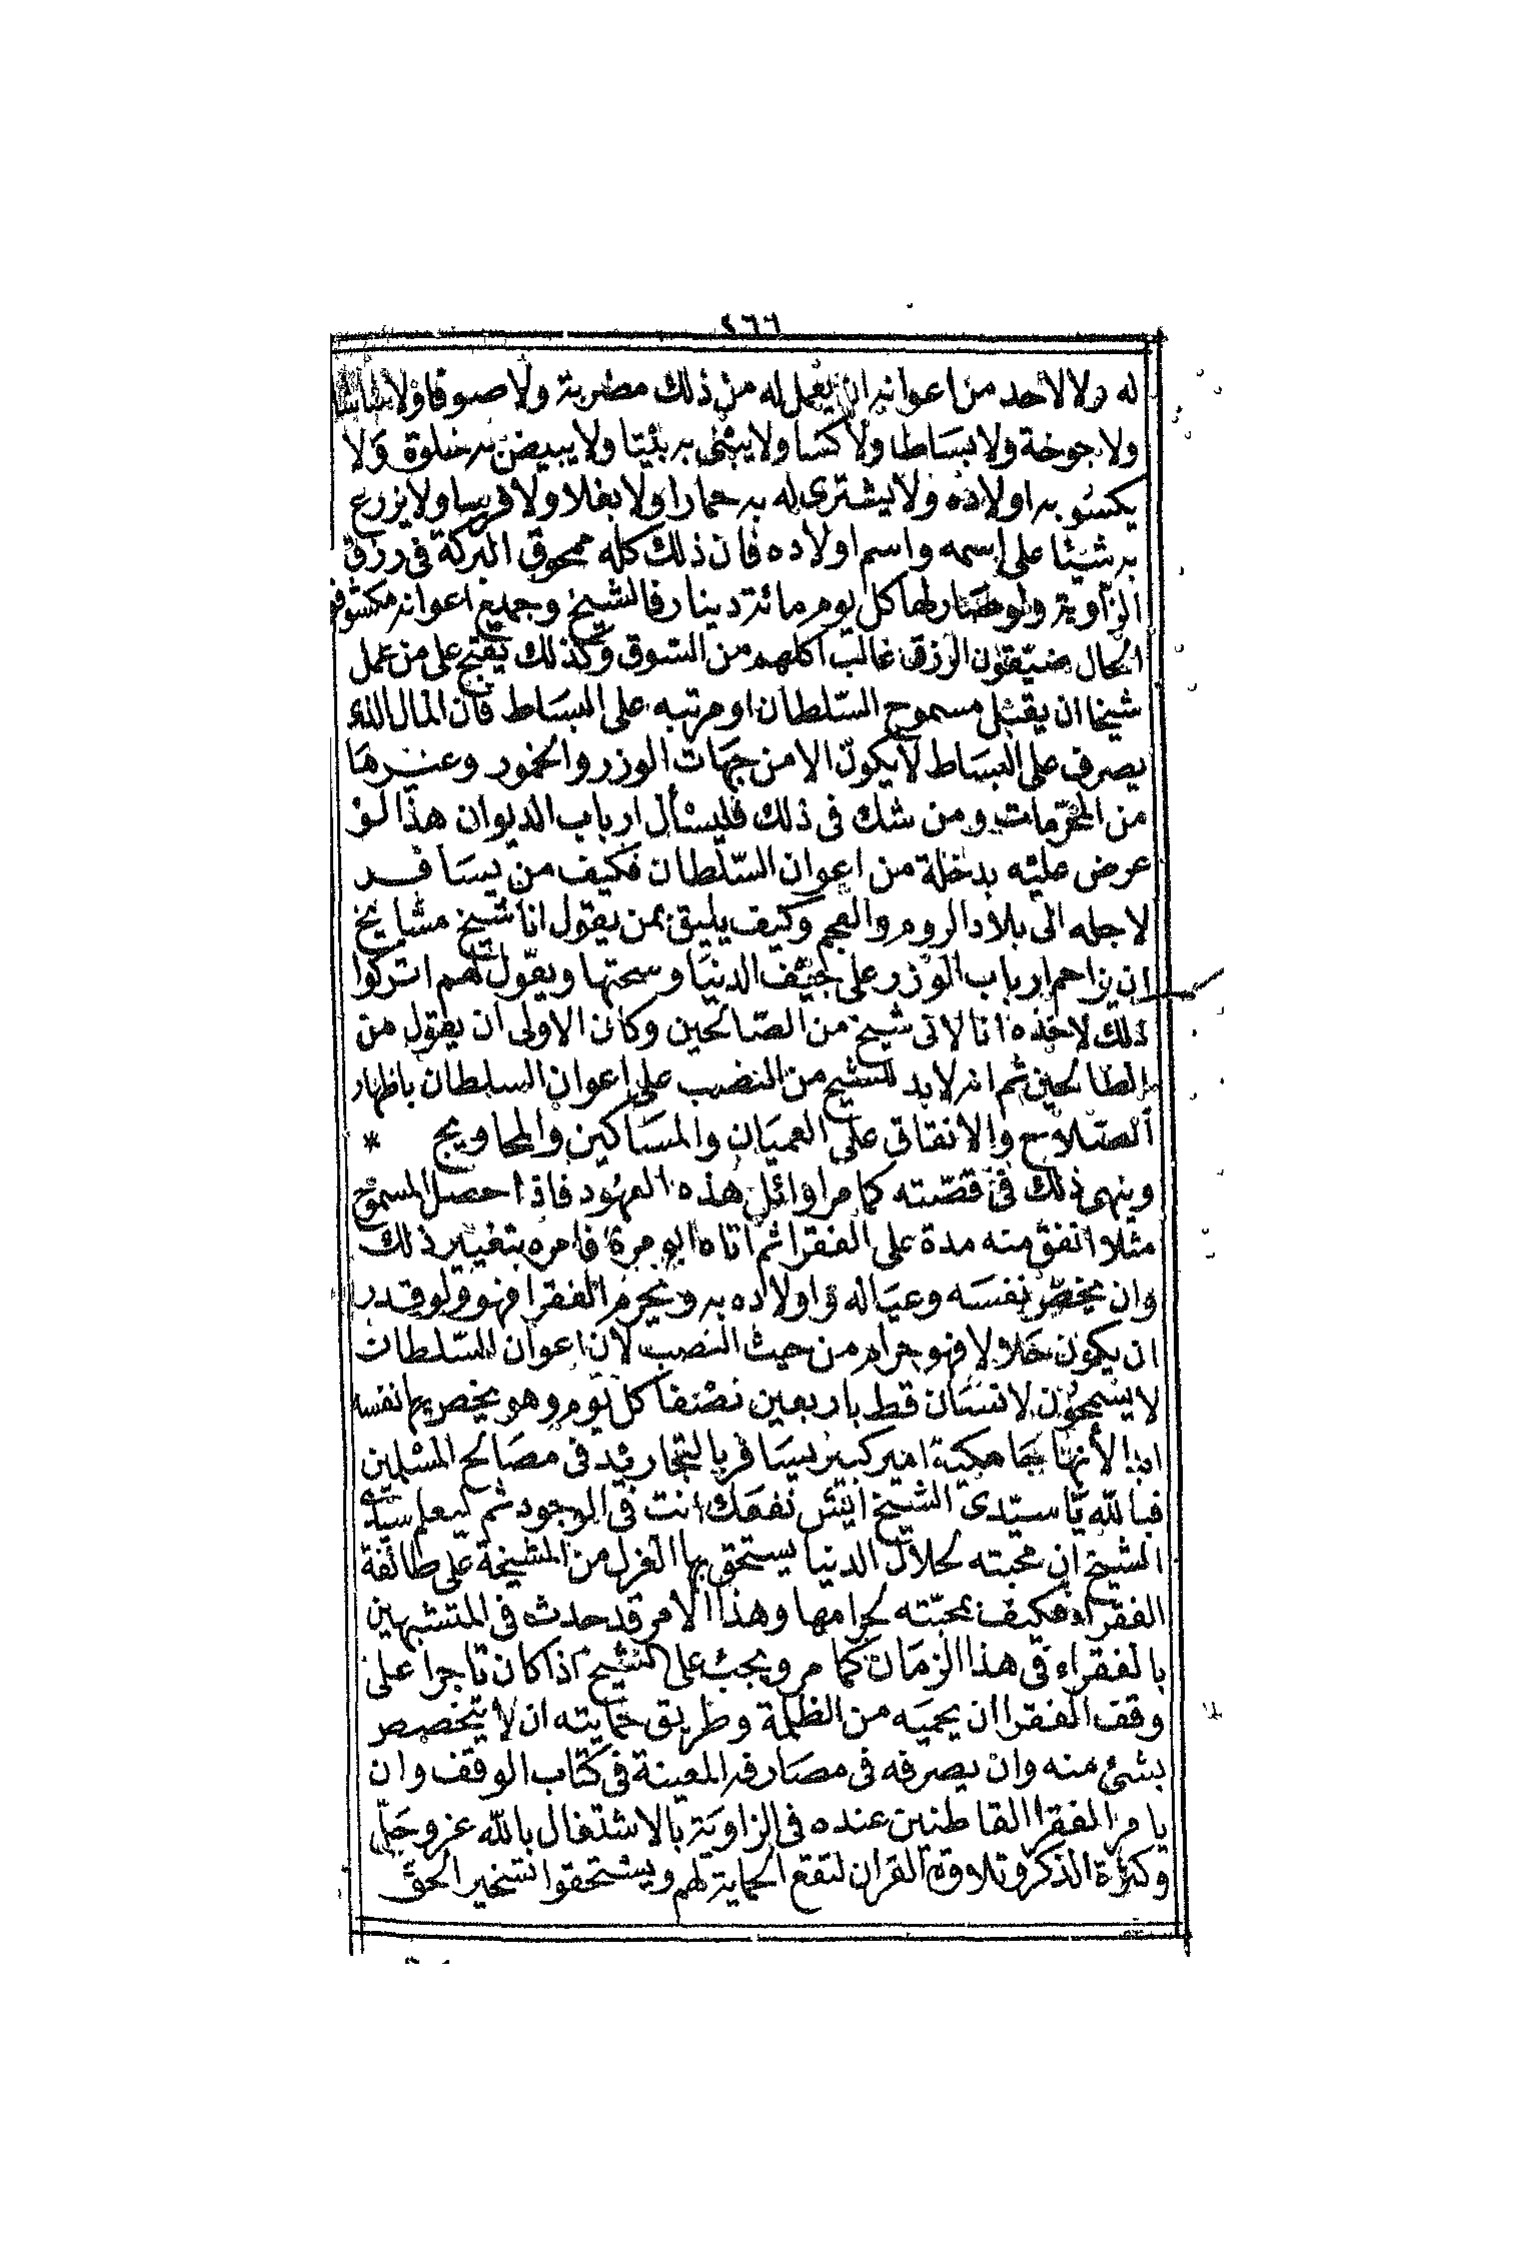 ٤٦٦
له ولا لاحد من اعوانه ان يعمل له من ذلك مضربة ولا صوفا ولا شاشا
ولا جوخة ولا بساطا ولا كسا ولا يبنى به بيتا ولا يبيض به خلوة ولا
يكسو به اولاده ولا يشترى له به حمارا ولا بغلا ولا فرسا ولا يزرع
به شيئا على اسمه واسم اولاده فان ذلك كله ممحوق البركة فى رزق
الزاوية ولو صار لها كل يوم مائة دينار فالشيخ وجميع اعوانه مكشوفو
الحال ضيقون الرزق غالب اكلهم من السوق وكذلك يقبح على من عمل
شيخا ان يقبل مسموح السلطان او مرتبه على البساط فان المال الذى
يصرف على البساط لا يكون الا من جهات الوزر والخمور وغيرها
من المحرمات ومن شك فى ذلك فليسأل ارباب الديوان هذا لو
عرض عليه بدخلة من اعوان السلطان فكيف من يسافر
لاجله الى بلاد الروم والعجم وكيف يليق بمن يقول انا شيخ مشايخ
ان يزاحم ارباب الوزر على جيف الدنيا وسحتها ويقول لهم اتركوا
ذلك لاخذه انا لانى شيخ من الصالحين وكان الاولى ان يقول من
الطالحين ثم انه لا بد للشيخ من النصب على اعوان السلطان باظهار
الصلاح والانفاق على العميان والمساكين والمحاويج *
وينهى ذلك فى قصته كما مر اوائل هذه العهود فاذا حصل المسموح
مثلا وانفق منه مدة على الفقرا ثم اتاه ابو مرة فامره بتغيير ذلك
وان يخص نفسه وعياله واولاده به ويحرم الفقرا فهو ولو قدر
ان يكون حلالا فهو حرام من حيث النصب لان اعوان السلطان
لا يسمحون لانسان قط باربعين نصفا كل يوم وهو يخص بها نفسه
ابدا لأنها جامكية امير كبير يسافر بالتجاريد فى مصالح المسلمين
فبالله يا سيدى الشيخ ايش نفعك انت فى الوجود ثم ليعلم سيدى
الشيخ ان محبته لحلال الدنيا يستحق بها العزل من المشيخة على طائفة
الفقراء فكيف بمحبته لحرامها وهذا الامر قد حدث فى المتشبهين
بالفقراء فى هذا الزمان كما مر ويجب على الشيخ اذا كان تاجرا على
وقف الفقرا ان يحميه من الظلمة وطريق حمايته ان لا يتخصص
بشئ منه وان يصرفه فى مصارفه المعينة فى كتاب الوقف وان
يامر الفقرا القاطنين عنده فى الزاوية بالاشتغال بالله عز وجل
وكثرة الذكر وتلاوة القران لتقع الحماية لهم ويستحقوا تسخير الحق